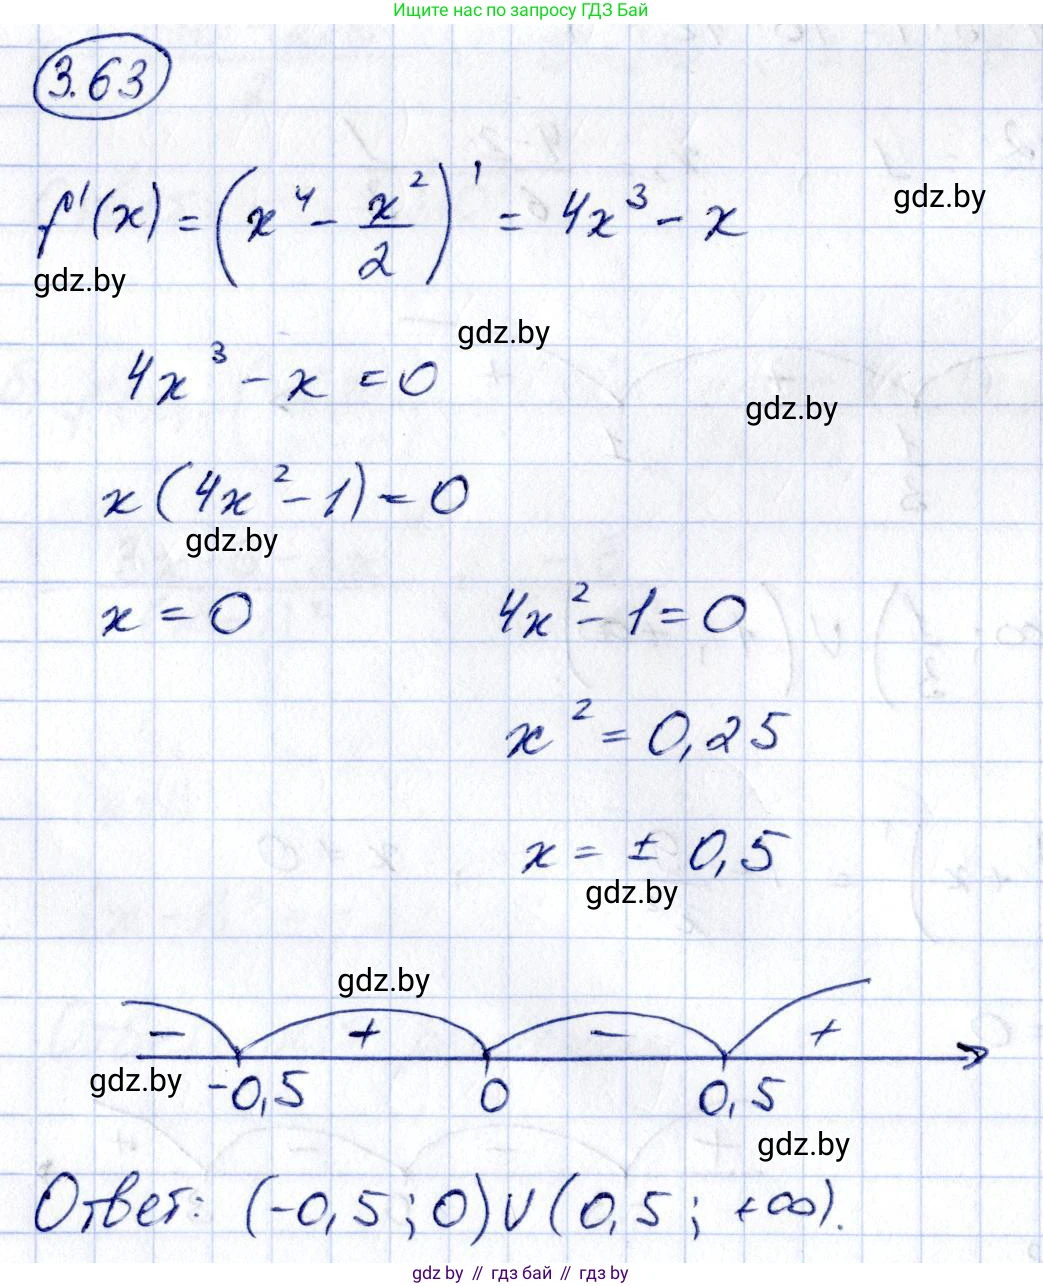 Ищите нас по запросу ГДЗ Бай
3.63
f'(x) = (x⁴ - x²/2)' = 4x³ - x
gdz.by
gdz.by
gdz.by
4x³ - x = 0
gdz.by
x(4x² - 1) = 0
gdz.by
x = 0 4x² - 1 = 0
x² = 0,25
x = ± 0,5
gdz.by
gdz.by
- + - +
gdz.by
-0,5 0 0,5
gdz.by
Ответ: (-0,5; 0) ∪ (0,5; +∞).
gdz.by // гдз бай // гдз by